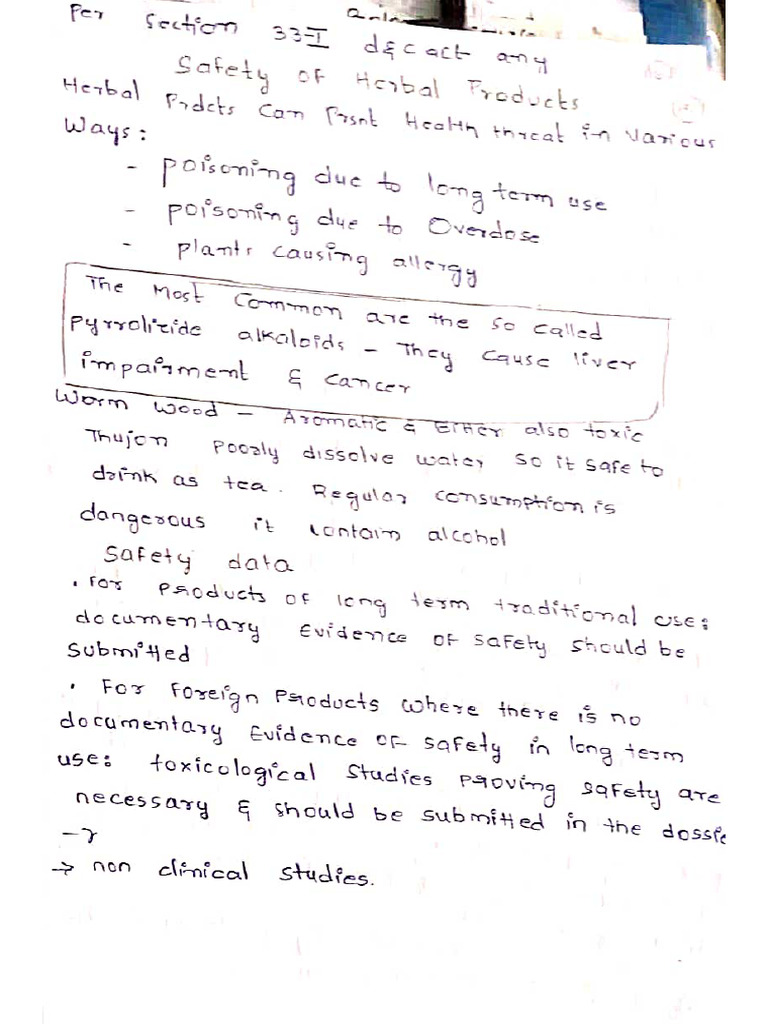 Per Section 33-I d&c act any
Safety of Herbal Products
Herbal Prdcts Can Prsnt Health threat in various
Ways:
- poisoning due to long term use
- poisoning due to Overdose
- plants causing allergy
The Most Common are the so called
pyrrolizide alkaloids - They cause liver
impairment & cancer
Worm wood - Aromatic & Either also toxic
Thujon poorly dissolve water so it safe to
drink as tea. Regular consumption is
dangerous it contain alcohol
Safety data
. For products of long term traditional use:
documentary Evidence of safety should be
Submitted
. For Foreign Products where there is no
documentary Evidence of safety in long term
use: toxicological Studies proving safety are
necessary & should be submitted in the dossie
-r
→ non clinical studies.